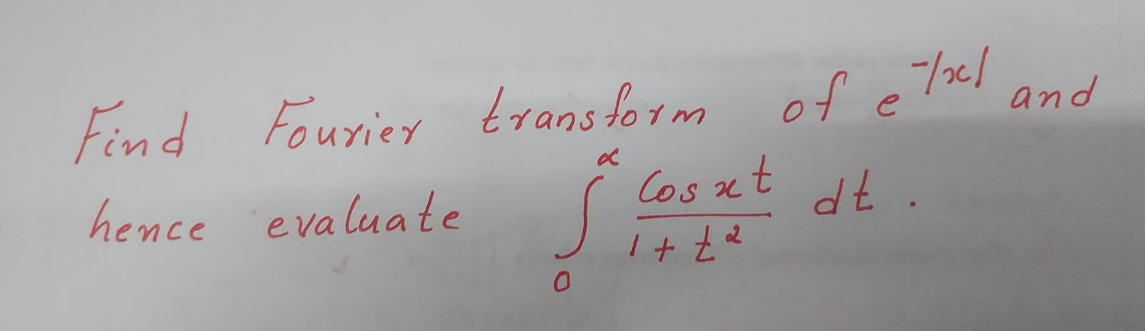 Find Fourier transform of e^{-|x|} and
hence evaluate ∫_0^∝ \frac{Cos xt}{1+t^2} dt.